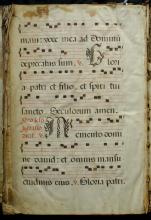 mavit: voce mea ad Dominũ
deprecatus sum, v. Glori
a patri et filio, et spiritui
sancto. Seculorum amen.
Memento domi
ne david: et omnis mansu
etudinis eius, v. Gloria patri.